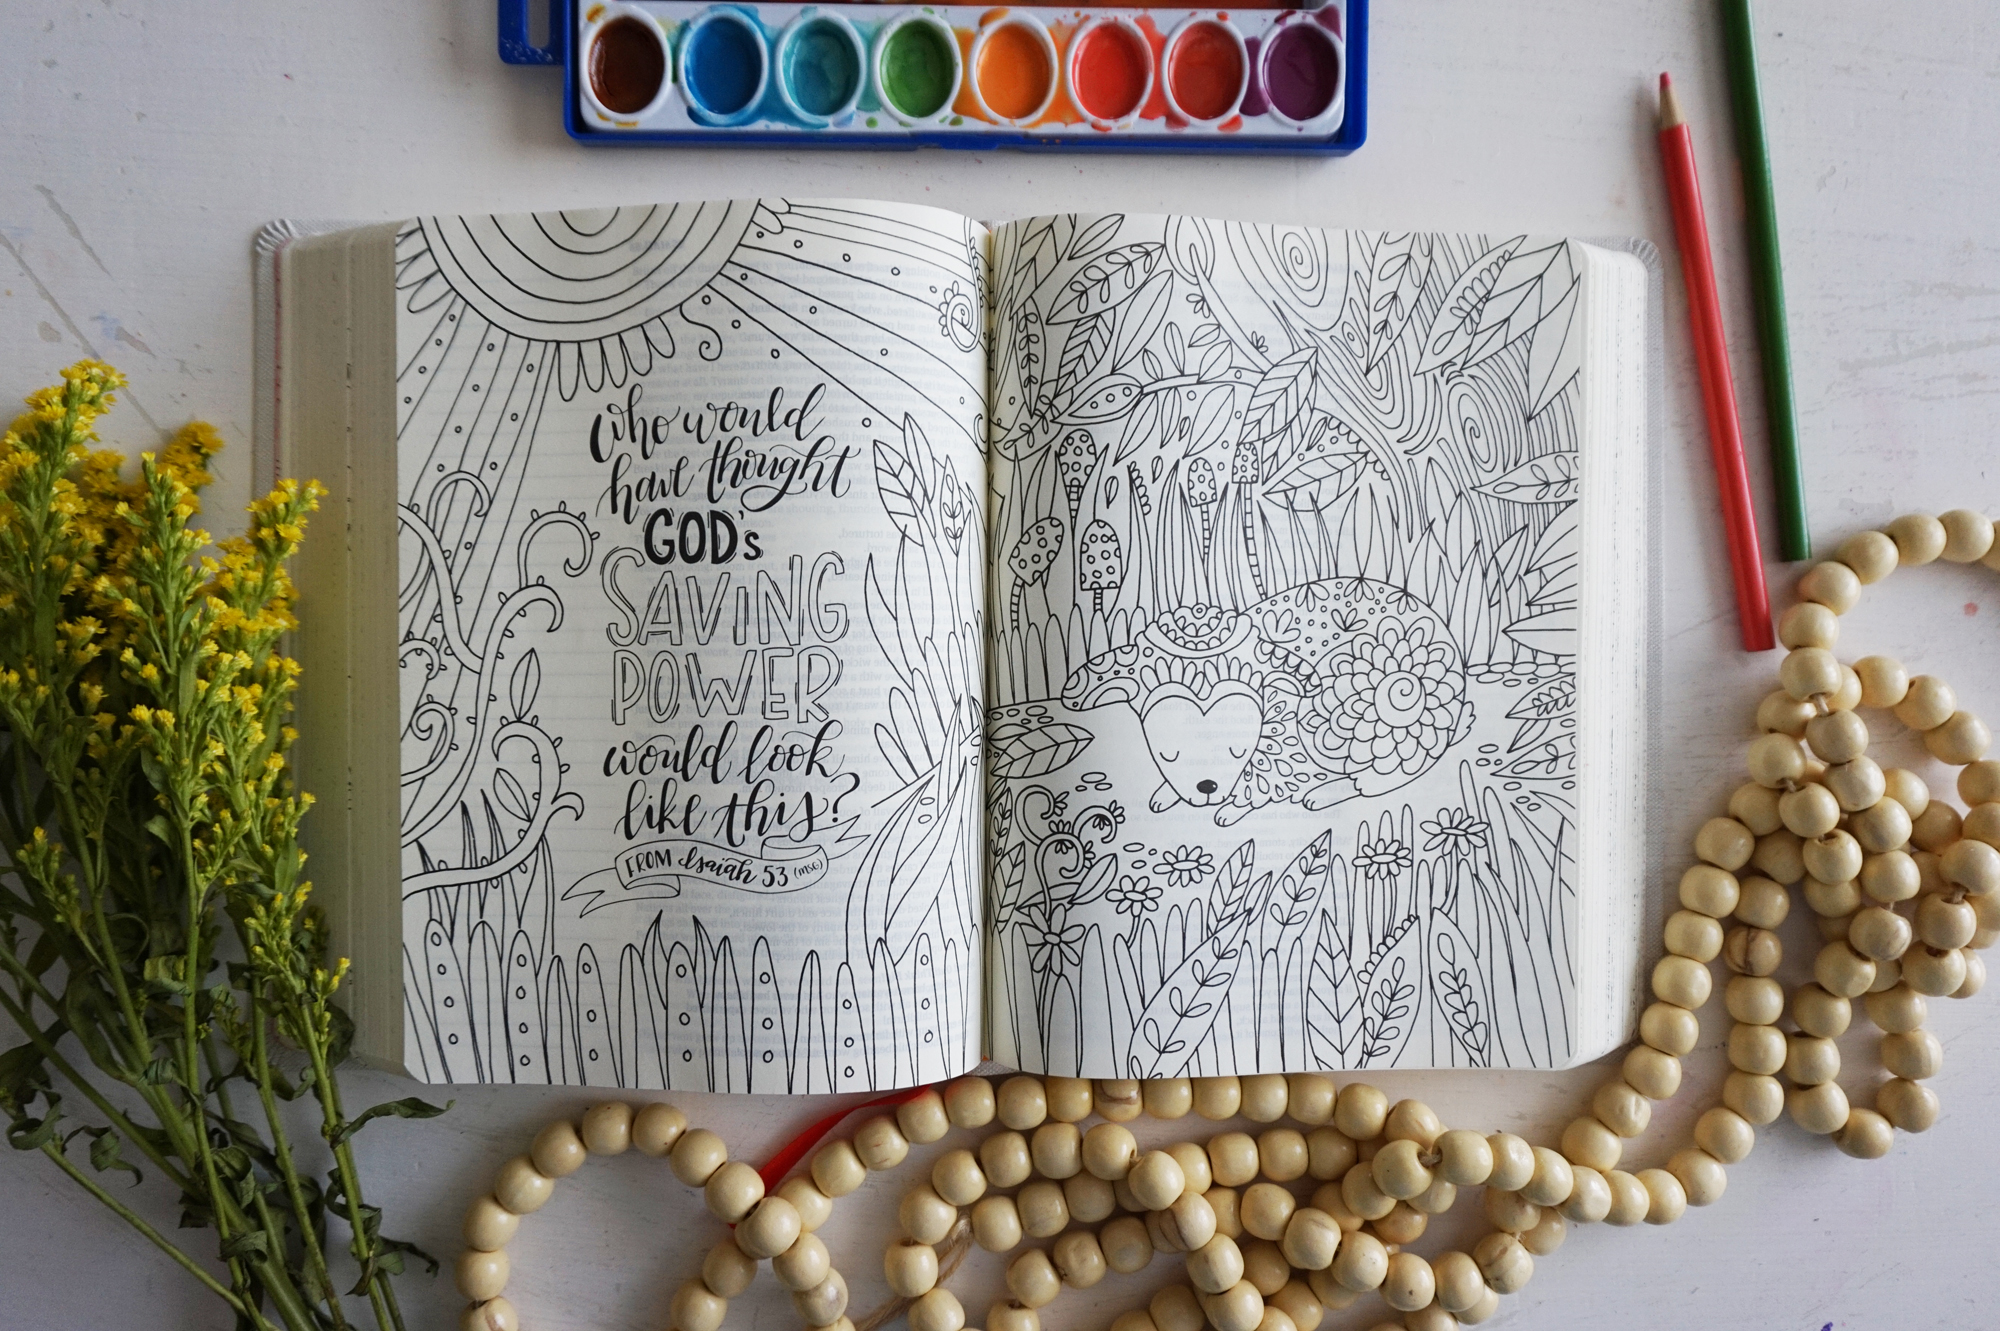 who would
have thought
GOD's
SAVING
POWER
would look
like this?
FROM Isaiah 53 (MSG)